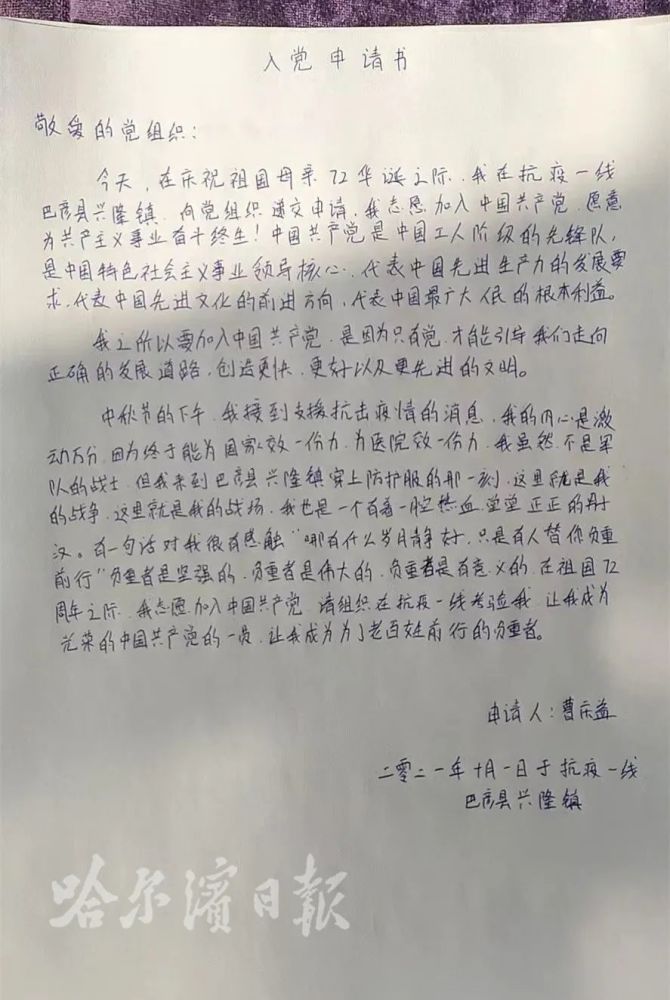 入党申请书
敬爱的党组织：
今天，在庆祝祖国母亲72华诞之际，我在抗疫一线
巴彦县兴隆镇，向党组织递交申请，我志愿加入中国共产党，愿意
为共产主义事业奋斗终生！中国共产党是中国工人阶级的先锋队，
是中国特色社会主义事业领导核心，代表中国先进生产力的发展要
求，代表中国先进文化的前进方向，代表中国最广大人民的根本利益。
我之所以要加入中国共产党，是因为只有党，才能引导我们走向
正确的发展道路，创造更快、更好以及更先进的文明。
中秋节的下午，我接到支援抗击疫情的消息，我的内心是激
动万分，因为终于能为国家效一份力，为医院效一份力，我虽然不是军
队的战士，但我来到巴彦县兴隆镇穿上防护服的那一刻，这里就是我
的战争，这里就是我的战场，我也是一个有着一腔热血，堂堂正正的男
汉。有一句话对我很有感触“哪有什么岁月静好，只是有人替你负重
前行”负重者是坚强的，负重者是伟大的，负重者是有意义的，在祖国72
周年之际，我志愿加入中国共产党，请组织在抗疫一线考验我，让我成为
光荣的中国共产党的一员，让我成为为了老百姓前行的负重者。
申请人：曹庆益
二零二一年十月一日于抗疫一线
巴彦县兴隆镇
哈尔滨日报